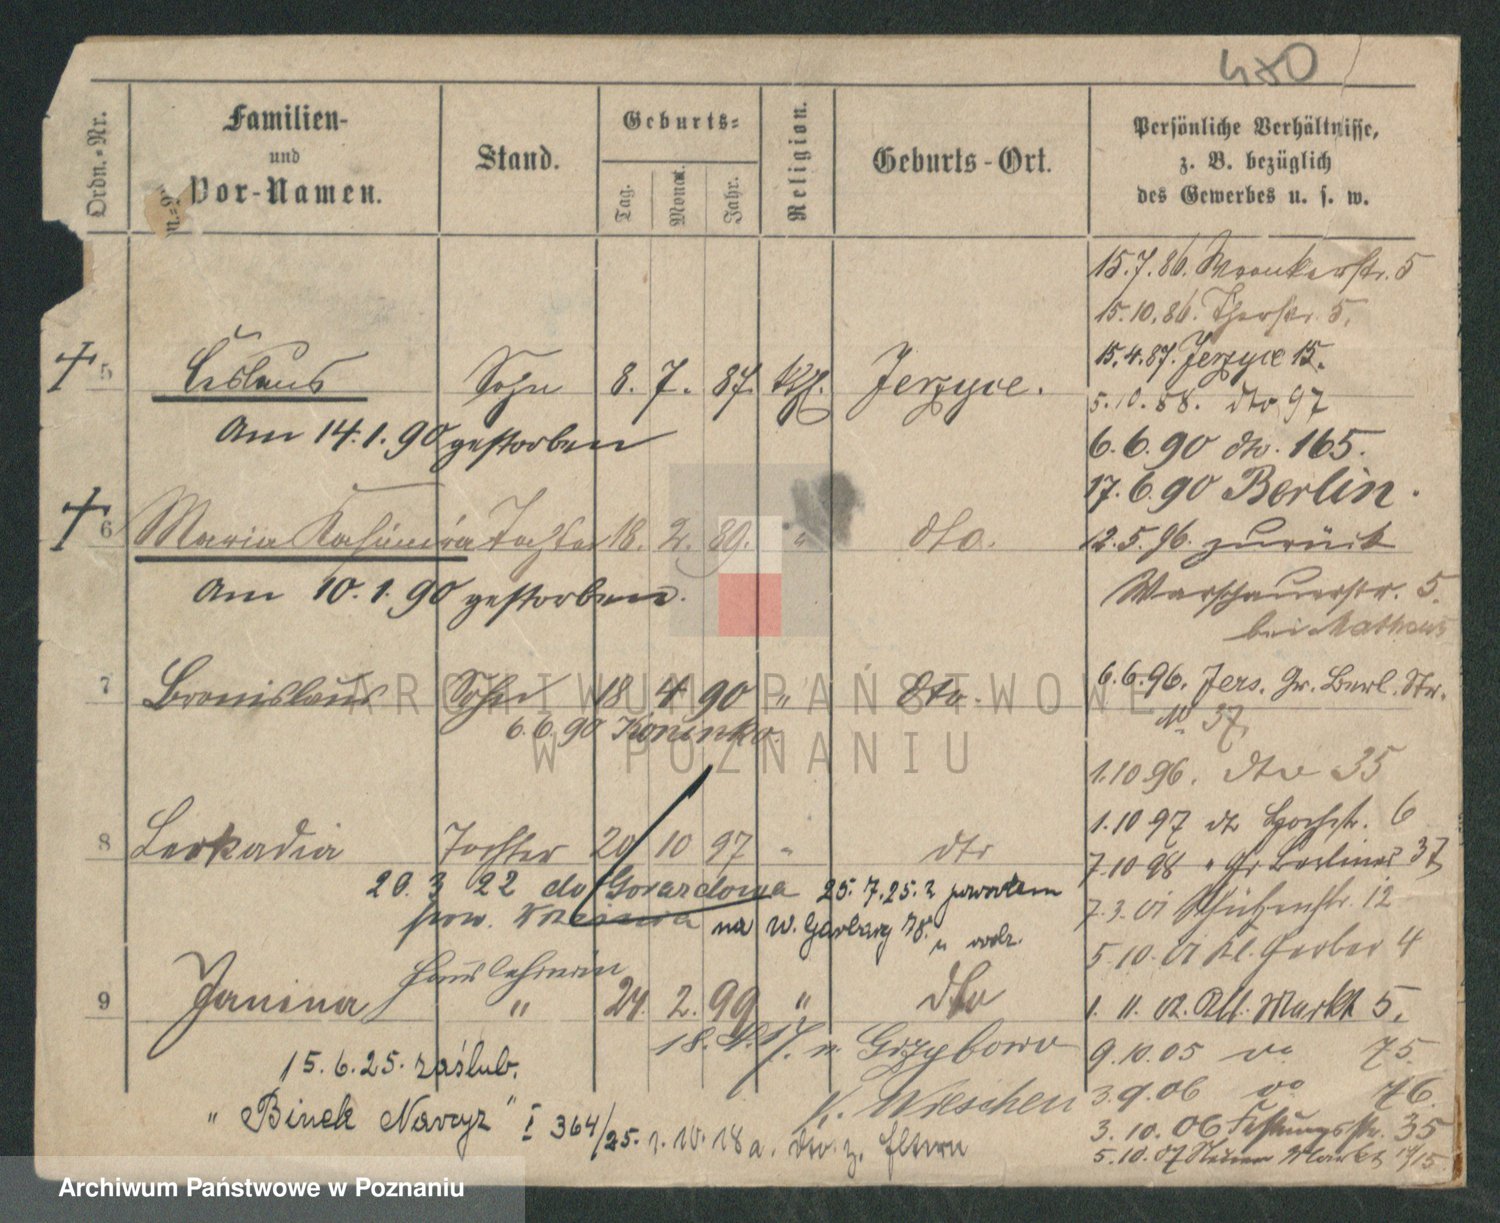 480
Ordn.-Nr.
Familien-
und
Vor-Namen.
Stand.
Geburts-
Tag.
Monat.
Jahr.
Religion.
Geburts-Ort.
Persönliche Verhältnisse,
z. B. bezüglich
des Gewerbes u. s. w.
15.7.86. Wronkerstr. 5
15.10.86. Thorstr. 5.
15.4.87. Jerzyce 15.
5 Česlaus Sohn 8. 7. 87. kth. Jerzyce.
5.10.88. dto 97
Am 14.1.90 gestorben
6.6.90 dto. 165.
17.6.90 Berlin.
6 Maria Kasimira Tochter 18. 2. 89. " dto.
12.5.96. zurück
Am 10.1.90 gestorben.
Warschauerstr. 5.
bei Matheus
7 Bronislaus Sohn 18 4 90 " dto.
6.6.96. Jers. Gr. Berl. Str.
№ 37,
6.6.90 Koninko.
ARCHIWUM PAŃSTWOWE
W POZNANIU
1.10 96. dto 35
1.10 97 dt Hochstr. 6
8 Leokadia Tochter 20 10 97 " dto
7.10 98 " Gr Berliner 37,
20. 3 22 do Gorazdowa 25.7.25. z powrotem
pow. Września na W. Garbary 78.
7.3.01 Schützenstr. 12
u rodz.
5.10.01 Kl. Gerber 4
Hauslehrerin
9 Janina " 24. 2. 99 " dto
1. 11. 02. Alt. Markt 5.
17. n. Grzybowo
9.10.05 do 75.
15.6.25. zaślub.
K. Wreschen
3.9.06 do 76.
"Binek Nareyz" I 364/25. 1.10.18 a. dto. z. Eltern
3.10.06 Festungsstr. 35
5.10.07 Markt 14/15
Archiwum Państwowe w Poznaniu